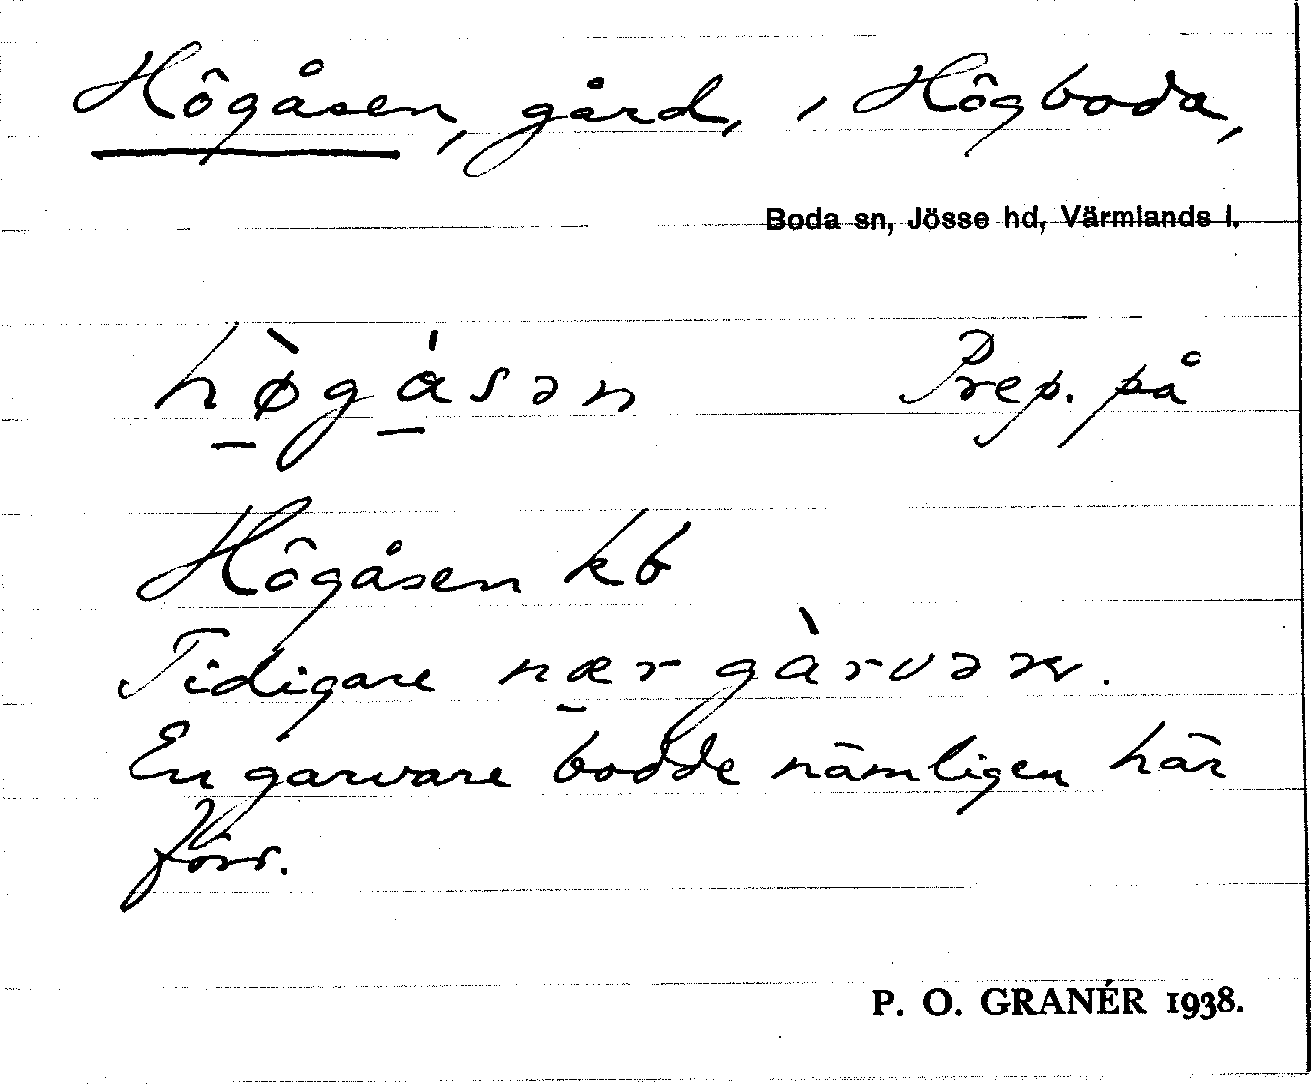 Högåsen, gård, i Högboda,
Boda sn, Jösse hd, Värmlands l.
hø̀gásən Prep. på
Högåsen kb
Tidigare nær gàrvər.
En garvare bodde nämligen här
förr.
P. O. GRANÉR 1938.